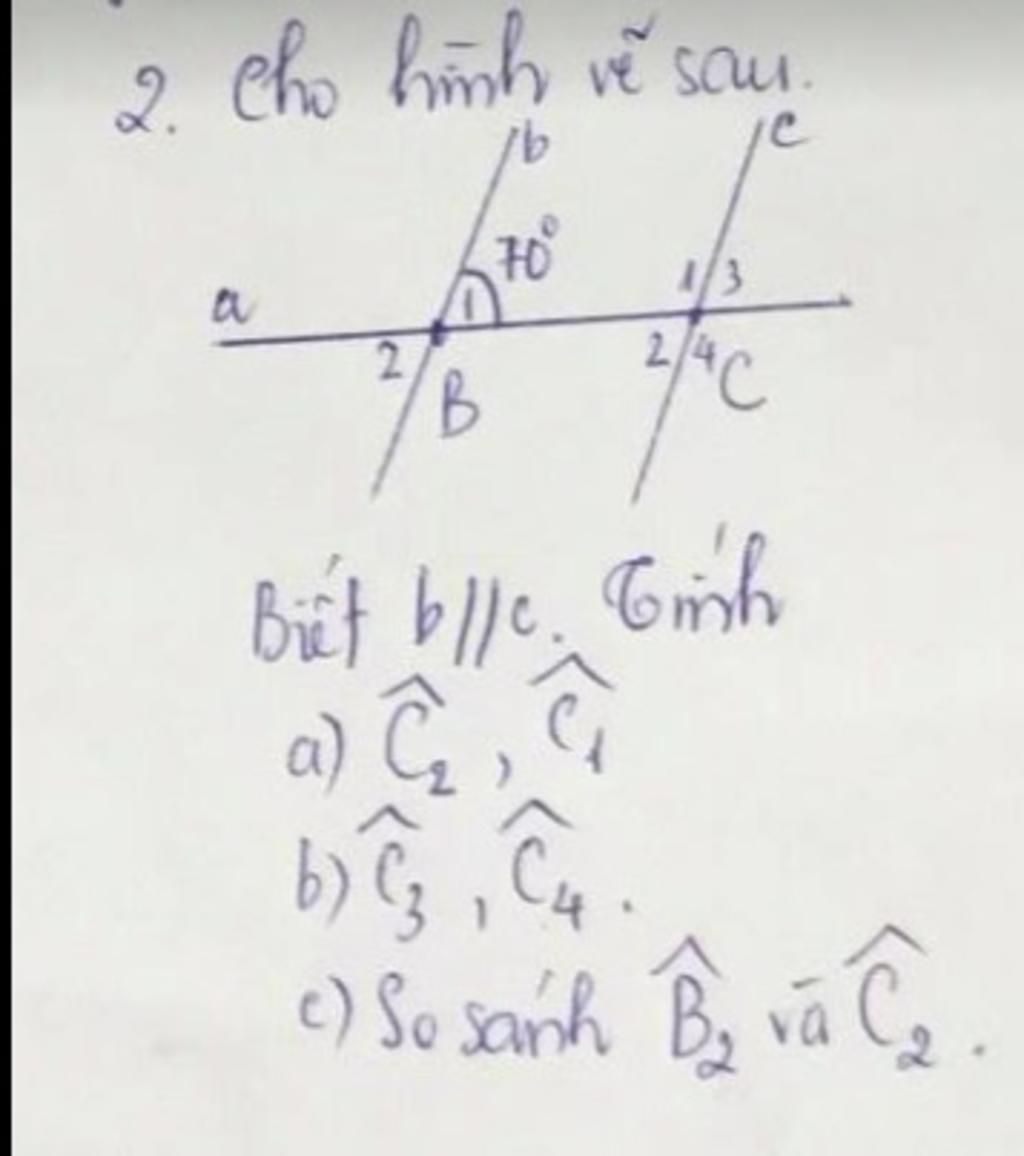 2. Cho hình vẽ sau.
b
c
70°
a
1
1 3
2
2 4
B
C
Biết b//c. Tính
a) Ĉ₂ , Ĉ₁
b) Ĉ₃ , Ĉ₄ .
c) So sánh B̂₂ và Ĉ₂ .